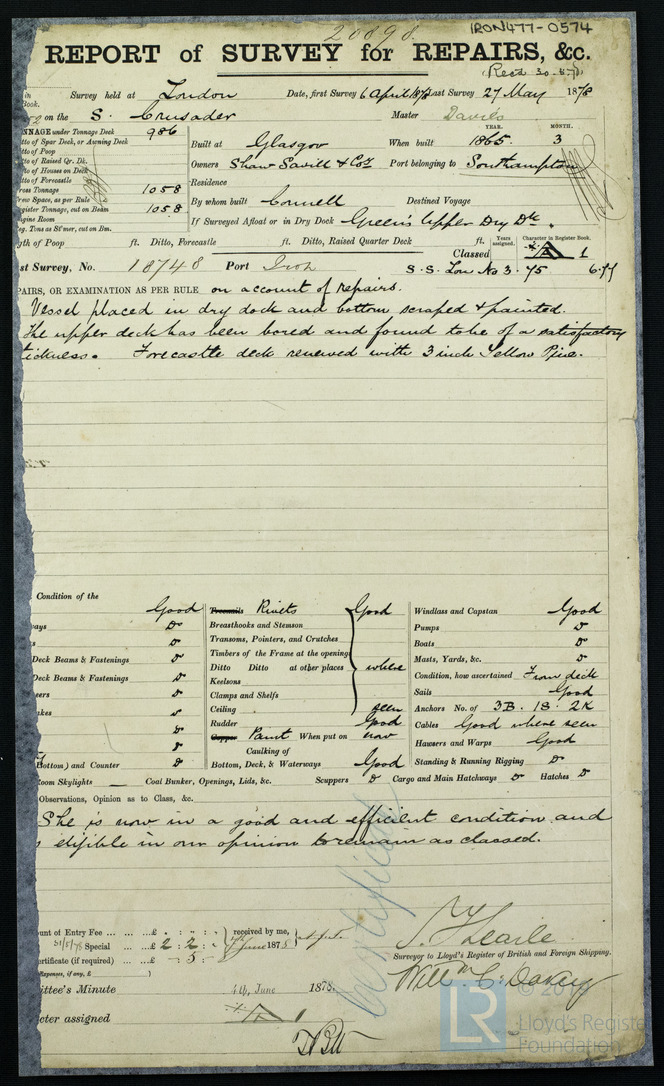 20898.
IRON477-0574
REPORT of SURVEY for REPAIRS, &c.
(Recd 30.5.78)
in Survey held at London Date, first Survey 6 April 1878 Last Survey 27 May 1878
Book.
52 on the S. Crusader Master Davies
NNAGE under Tonnage Deck 986
YEAR. MONTH.
tto of Spar Deck, or Awning Deck Built at Glasgow When built 1865. 3
tto of Poop
tto of Raised Qr. Dk. Owners Shaw Savill & Coy Port belonging to Southampton
tto of Houses on Deck
tto of Forecastle Residence
ross Tonnage 1058
rew Space, as per Rule By whom built Connell Destined Voyage
egister Tonnage, cut on Beam 1058
ngine Room If Surveyed Afloat or in Dry Dock Green's Upper Dry Dk.
eg. Tons as St'mer, cut on Bm.
gth of Poop ft. Ditto, Forecastle ft. Ditto, Raised Quarter Deck ft. Years assigned. Character in Register Book.
Classed A 1
st Survey, No. 18748 Port Iron S.S. Lon No 3. 75 6.77
PAIRS, OR EXAMINATION AS PER RULE on account of repairs.
Vessel placed in dry dock and bottom scraped & painted.
The upper deck has been bored and found to be of a satisfactory
ickness. Forecastle deck renewed with 3 inch Yellow Pine.
Condition of the
Good Treenails Rivets Good Windlass and Capstan Good
ways Do Breasthooks and Stemson Pumps Do
s Do Transoms, Pointers, and Crutches Boats Do
Deck Beams & Fastenings Do Timbers of the Frame at the openings Masts, Yards, &c. Do
Deck Beams & Fastenings Do Ditto Ditto at other places where Condition, how ascertained From deck
eers Do Keelsons Sails Good
akes Do Clamps and Shelfs Anchors No. of 3B. 1S. 2K
Do Ceiling seen Cables Good where seen
Do Rudder Good Hawsers and Warps Good
Copper Paint When put on now
Caulking of
Bottom) and Counter Do Bottom, Deck, & Waterways Good Standing & Running Rigging Do
oom Skylights — Coal Bunker, Openings, Lids, &c. Scuppers Do Cargo and Main Hatchways Do Hatches Do
Observations, Opinion as to Class, &c.
She is now in a good and efficient condition and
s eligible in our opinion to remain as classed.
Certificate
unt of Entry Fee ... ... ...£ received by me,
31/5/78 Special ... ...£ 2 : 2 : - June 1878
ertificate (if required) ...£ - : 5 : -
Expenses, if any, £ )
Surveyor to Lloyd's Register of British and Foreign Shipping.
Willm C. Davey
ittee's Minute 4th June 1878.
cter assigned A 1
LR
© 20
Lloyd's Register
Foundation